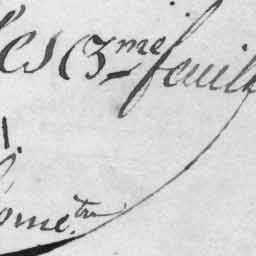 es (3me feuill
1.
ome.tre